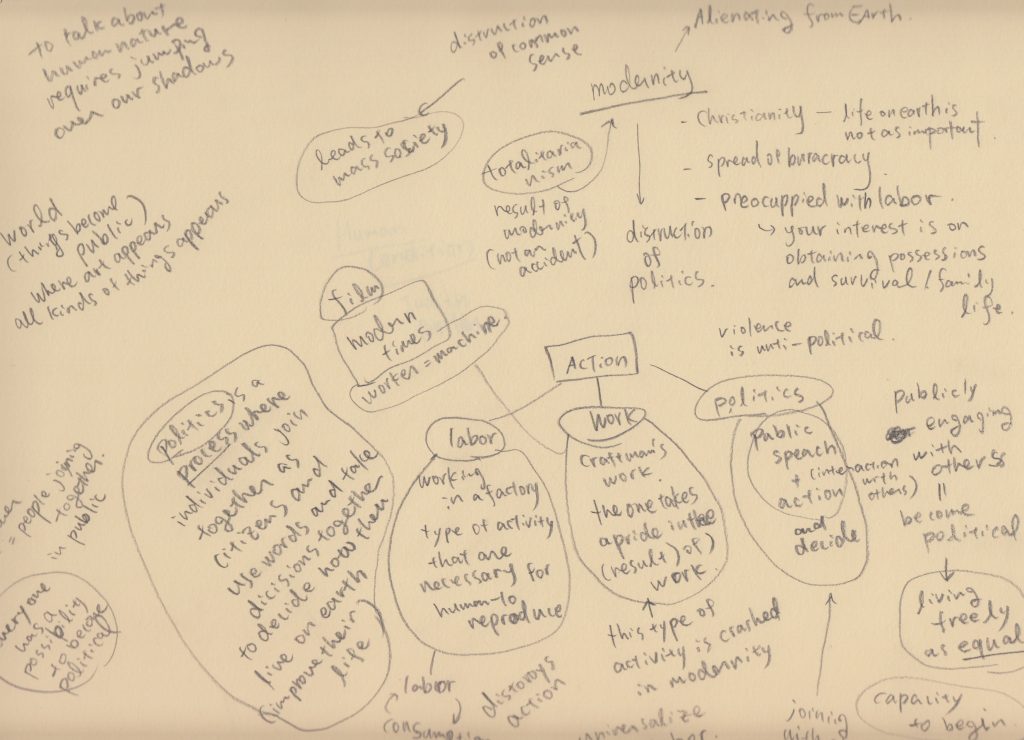 to talk about
human nature
requires jumping
over our shadows
distruction
of common
sense
Alienating from Earth.
leads to
mass society
modernity
- Christianity — life on earth is
not as important.
- spread of buracracy
- preocuppied with labor.
↳ your interest is on
obtaining possessions
and survival / family
life.
totalitaria
nism
result of
modernity
(not an
accident)
distruction
of
politics.
world
(things become
public)
where art appears
all kinds of things appears
Human
Condition
film
modern
times
worker = machine
Action
violence
is unti-political.
politics is a
process where
individuals join
together as
citizens and
use words and take
dicisions together
to decide how then
live on earth
(improve their)
life
labor
working
in a factory
type of activity
that are
necessary for
human to
reproduce
labor
consumption
distoroys
action
work
Craftman's
work.
the one takes
a pride in the
(result) of)
work.
this type of
activity is crashed
in modernity
universalize
politics
public
speach
+ (interaction
with
others)
action
and
decide
joining
publicly
engaging
with
others
=
become
political
living
freely
as equal
capacity
to begin.
= people joining
together.
in public
everyone
has a
possibility
to become
political